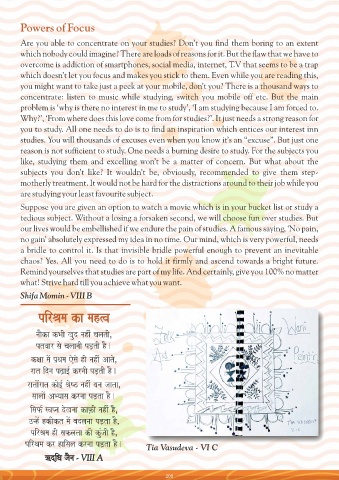 Powers of Focus
Are you able to concentrate on your studies! Don't you find them boring to an extent
which nobody could imagine! There are loads of reasons for it. But the flaw that we have to
overcome is addiction of smartphones, social media, internet, T.V that seems to be a trap
which doesn't let you focus and makes you stick to them. Even while you are reading this,
you might want to take just a peek at your mobile, don't you? There is a thousand ways to
concentrate: listen to music while studying, switch you mobile off etc. But the main
problem is 'why is there no interest in me to study', 'I am studying because I am forced to.
Why?', 'From where does this love come from for studies?'. It just needs a strong reason for
you to study. All one needs to do is to find an inspiration which entices our interest inn
studies. You will thousands of excuses even when you know it's an "excuse". But just one
reason is not sufficient to study. One needs a burning desire to study. For the subjects you
like, studying them and excelling won't be a matter of concern. But what about the
subjects you don't like? It wouldn't be, obviously, recommended to give them step-
motherly treatment. It would not be hard for the distractions around to their job while you
are studying your least favourite subject.
Suppose you are given an option to watch a movie which is in your bucket list or study a
tedious subject. Without a losing a forsaken second, we will choose fun over studies. But
our lives would be embellished if we endure the pain of studies. A famous saying, 'No pain,
no gain' absolutely expressed my idea in no time. Our mind, which is very powerful, needs
a bridle to control it. Is that invisible bridle powerful enough to prevent an inevitable
chaos? Yes. All you need to do is to hold it firmly and ascend towards a bright future.
Remind yourselves that studies are part of my life. And certainly, give you 100% no matter
what! Strive hard till you achieve what you want.
Shifa Momin - VIII B
परिश्रम का महत्व
नौका कभी खुद नहीं चलती,
पतवार से चलानी पड़ती है।
कक्षा में प्रथम ऐसे ही नहीं आते,
रात दिन पढ़ाई करनी पड़ती है।
रातोंरात कोई श्रेष्ठ नहीं बन जाता,
सालों अभ्यास करना पड़ता है।
सिर्फ़ स्वप्न देखना काफ़ी नहीं है,
उन्हें हकीकत में बदलना पड़ता है,
परिश्रम ही सफलता की कुंजी है,
परिश्रम कर हासिल करना पड़ता है।
ऋद्धि जैन - VIII A
Warli
Painting
Tia Vasudeva - VI C